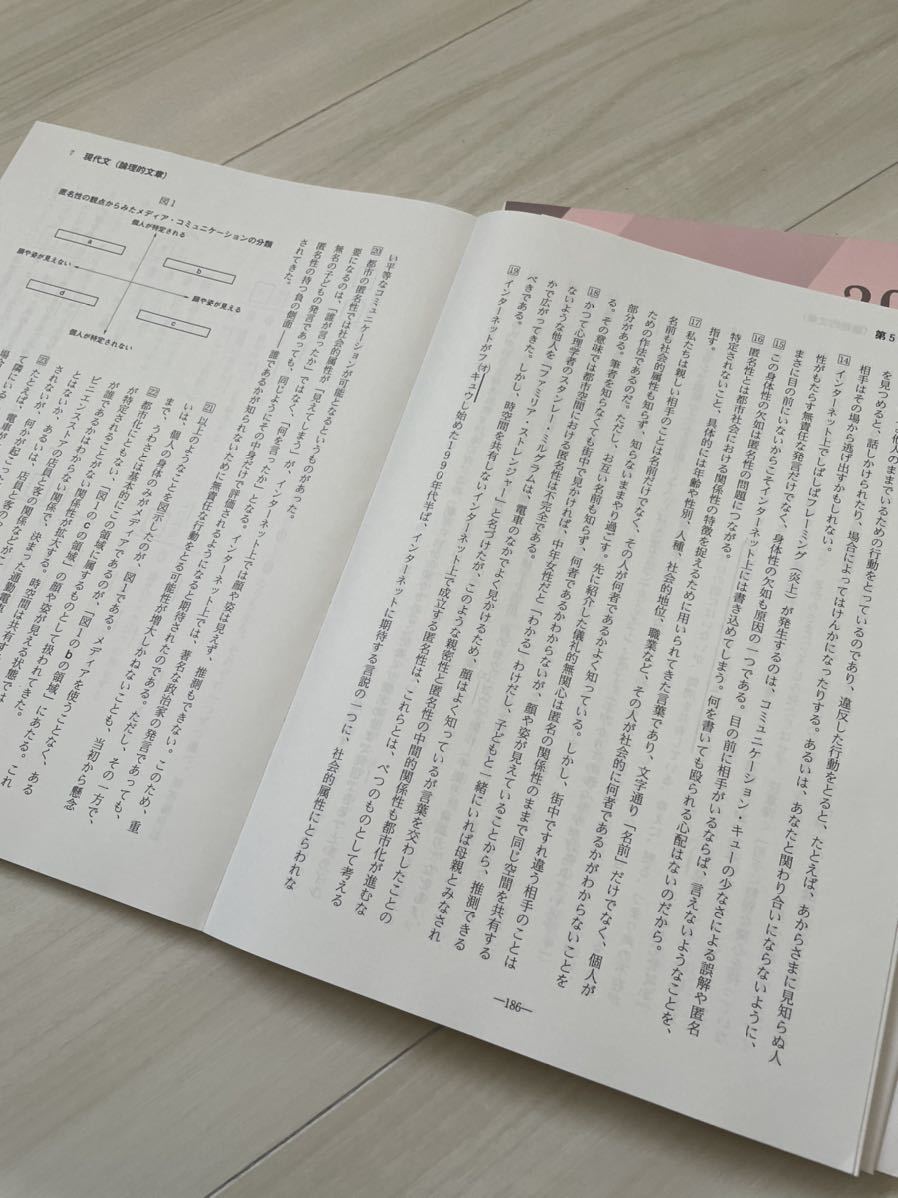 第5
を見つめると、話しかけられたり、場合によってはけんかになったりする。あるいは、あなたと関わり合いにならないように、
相手はその場から逃げ出すかもしれない。
14 インターネット上でしばしばフレーミング(炎上)が発生するのは、コミュニケーション・キューの少なさによる誤解や匿名
性がもたらす無責任な発言だけでなく、身体性の欠如も原因の一つである。目の前に相手がいるならば、言えないようなことを、
まさに目の前にいないからこそインターネット上には書き込めてしまう。何を書いても殴られる心配はないのだから。
15 この身体性の欠如は匿名性の問題につながる。
16 匿名性とは都市社会における関係性の特徴を捉えるために用いられてきた言葉であり、文字通り「名前」だけでなく、個人が
特定されないこと、具体的には年齢や性別、人種、社会的地位、職業など、その人が社会的に何者であるかがわからないことを
指す。
17 私たちは親しい相手のことは名前だけでなく、その人が何者であるかよく知っている。しかし、街中ですれ違う相手のことは
名前も社会的属性も知らず、知らないままやり過ごす。先に紹介した儀礼的無関心は匿名の関係性のままで同じ空間を共有する
ための作法であるのだ。ただし、お互い名前も知らず、何者であるかわからないが、顔や姿が見えていることから、推測できる
部分がある。筆者を知らなくても街中で見かければ、中年女性だと「わかる」わけだし、子どもと一緒にいれば母親とみなされ
る。その意味では都市空間における匿名性は不完全である。
18 かつて心理学者のスタンレー・ミルグラムは、電車のなかでよく見かけるため、顔はよく知っているが言葉を交わしたことの
ないような他人を「ファミリア・ストレンジャー」と名づけたが、このような親密性と匿名性の中間的関係性も都市化が進むな
かで広がってきた。しかし、時空間を共有しないインターネット上で成立する匿名性は、これらとは、べつのものとして考える
べきである。
19 インターネットがフキュウし始めた1990年代半ば、インターネットに期待する言説の一つに、社会的属性にとらわれな
—186—
7 現代文(論理的文章)
い平等なコミュニケーションが可能となるというものがあった。
20 都市の匿名性では社会的属性が「見えてしまう」が、インターネット上では顔や姿は見えず、推測もできない。このため、重
要になるのは、「誰が言ったか」ではなく、「何を言ったか」となる。インターネット上では、著名な政治家の発言であっても、
無名の子どもの発言であっても、同じようにその中身だけで評価されるようになると期待されたのである。ただし、その一方で、
匿名性の持つ負の側面——誰であるかが知られないために無責任な行動をとる可能性が増大しかねないことも、当初から懸念
されてきた。
図1
匿名性の観点からみたメディア・コミュニケーションの分類
個人が特定される
a
b
顔や姿が見えない
顔や姿が見える
d
c
個人が特定されない
21 以上のようなことを図示したのが、図1である。
いは、個人の身体のみがメディアであるのが、「図1のbの領域」にあたる。これ
まで、うわさとは基本的にこの領域に属するものとして扱われてきた。
22 都市化にともない、「図1のcの領域」の顔や姿が見える状態では
が特定されない
が誰であることが
ビニエンスストアの店員と客の